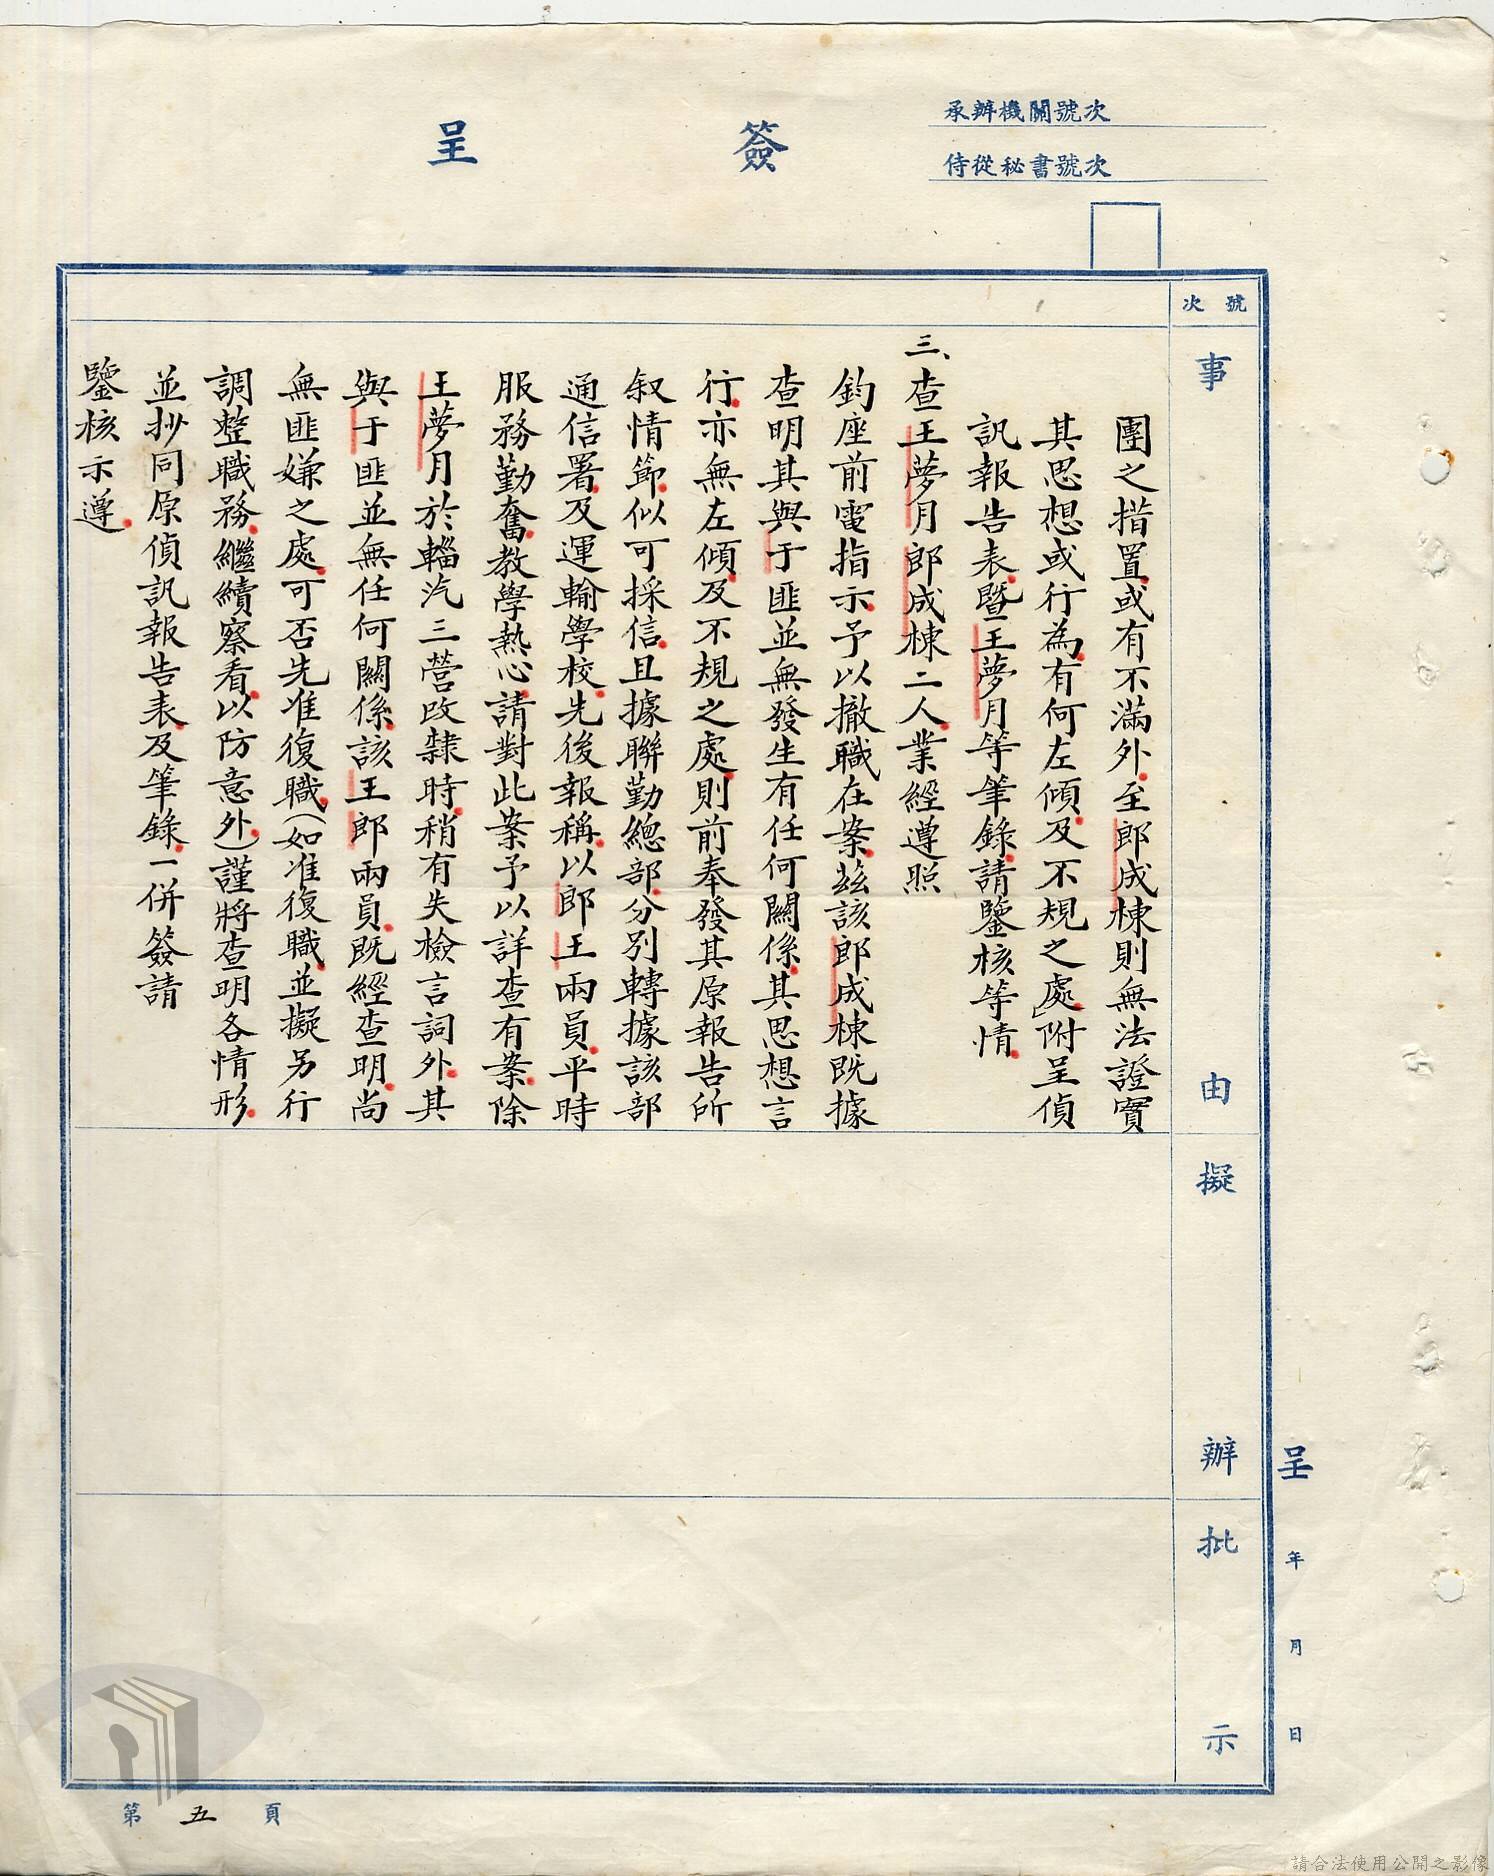 承辦機關號次
侍從秘書號次
簽呈
號次
事由
擬辦
批示
團之措置或有不滿外至郎成棟則無法證實
其思想或行為有何左傾及不規之處」附呈偵
訊報告表暨王夢月等筆錄請鑒核等情
三、查王夢月郎成棟二人業經遵照
鈞座前電指示予以撤職在案茲該郎成棟既據
查明其與于匪並無發生有任何關係其思想言
行亦無左傾及不規之處則前奉發其原報告所
叙情節似可採信且據聯勤總部分別轉據該部
通信署及運輸學校先後報稱以郎王兩員平時
服務勤奮教學熱心請對此案予以詳查有案除
王夢月於輜汽三營改隸時稍有失檢言詞外其
與于匪並無任何關係該王郎兩員既經查明尚
無匪嫌之處可否先准復職(如准復職並擬另行
調整職務繼續察看以防意外)謹將查明各情形
並抄同原偵訊報告表及筆錄一併簽請
鑒核示遵
呈 年 月 日
第五頁
請合法使用公開之影像